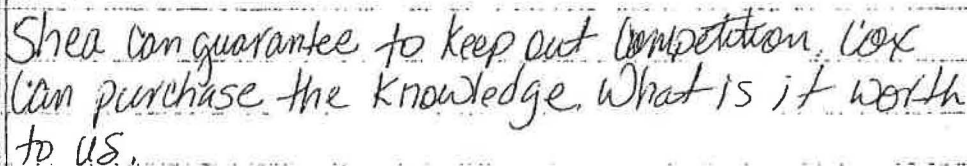 Shea can guarantee to keep out Competition. Cox
Can purchase the Knowledge. What is it worth
to us.